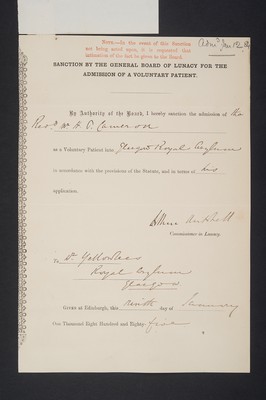 NOTE.—In the event of this Sanction
not being acted upon, it is requested that
intimation of the fact be given to the Board.
SANCTION BY THE GENERAL BOARD OF LUNACY FOR THE
ADMISSION OF A VOLUNTARY PATIENT.
By Authority of the Board, I hereby sanction the admission of the
Revd. Wm A. P. Cameron
as a Voluntary Patient into Glasgow Royal Asylum
in accordance with the provisions of the Statute, and in terms of his
application.
Arthur Mitchell
Commissioner in Lunacy.
To Dr. Yellowlees
Royal Asylum
Glasgow
GIVEN at Edinburgh, this ninth day of January
One Thousand Eight Hundred and Eighty-five